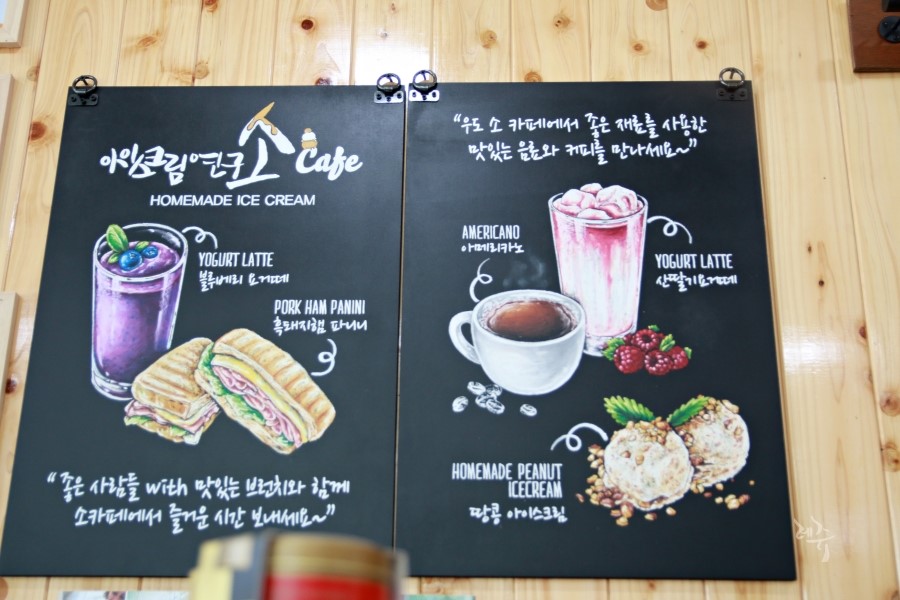 아이스크림연구소 Cafe
HOMEMADE ICE CREAM
YOGURT LATTE
블루베리 요거떼
PORK HAM PANINI
흑돼지햄 파니니
“좋은 사람들 with 맛있는 브런치와 함께
소카페에서 즐거운 시간 보내세요~”
“우도 소 카페에서 좋은 재료를 사용한
맛있는 음료와 커피를 만나세요~”
AMERICANO
아메리카노
YOGURT LATTE
산딸기요거떼
HOMEMADE PEANUT
ICECREAM
땅콩 아이스크림